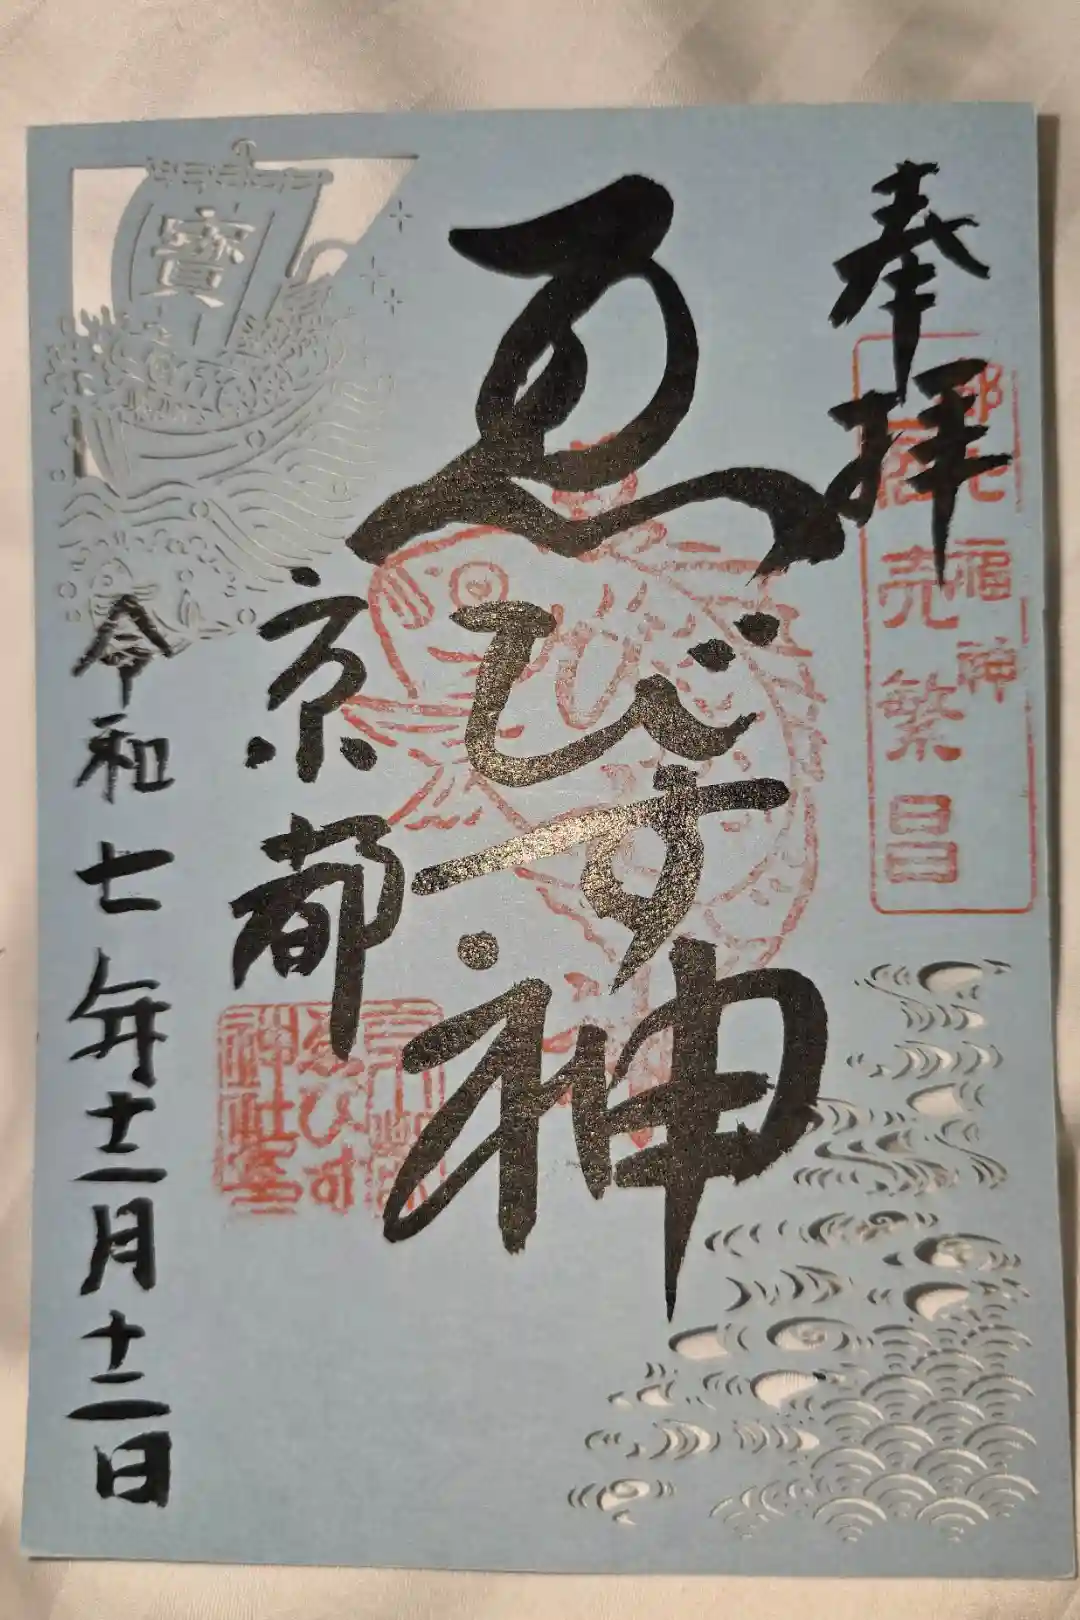 奉拝
都七福神
商売繁昌
ゑびす神
京都
ゑびす
寶
令和七年十二月十二日